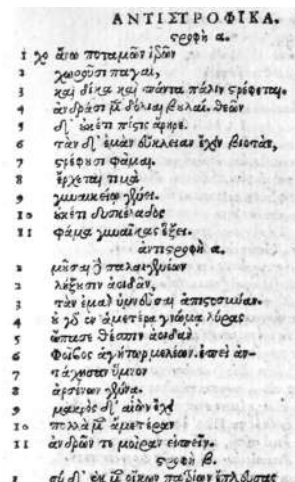 ΑΝΤΙΣΤΡΟΦΙΚΑ.
στροφὴ α.
1 χο ἄνω ποταμῶν ἱερῶν
2 χωροῦσι παγαὶ,
3 καὶ δίκα καὶ πάντα πάλιν στρέφεται.
4 ἀνδράσι μὲν δόλιαι βουλαί. θεῶν
5 δ' οὐκέτι πίστις ἄρηρε.
6 τὰν δ' ἐμὰν εὔκλειαν ἔχειν βιοτὰν,
7 στρέφουσι φᾶμαι.
8 ἔρχεται τιμὰ
9 γυναικείῳ γένει.
10 οὐκέτι δυσκέλαδος
11 φάμα γυναῖκας ἕξει.
ἀντιστροφὴ α.
1 μοῦσαι δὲ παλαιγενέων
2 λήξουσιν ἀοιδᾶν,
3 τὰν ἐμὰν ὑμνοῦσαι ἀπιστοσύναν.
4 οὐ γὰρ ἐν ἁμετέρᾳ γνώμᾳ λύρας
5 ὤπασε θέσπιν ἀοιδὰν
6 Φοῖβος ἁγήτωρ μελέων. ἐπεὶ ἀν-
7 τάχησαν ὕμνον
8 ἀρσένων γέννᾳ.
9 μακρὸς δ' αἰὼν ἔχει
10 πολλὰ μὲν ἁμετέραν
11 ἀνδρῶν τε μοῖραν εἰπεῖν.
στροφὴ β.
1 σὺ δ' ἐκ μὲν οἴκων πατρίων ἔπλευσας